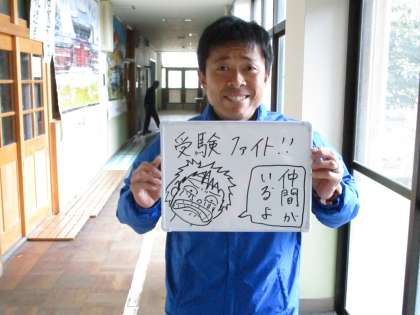 受験 ファイト!!
仲間が
いるよ